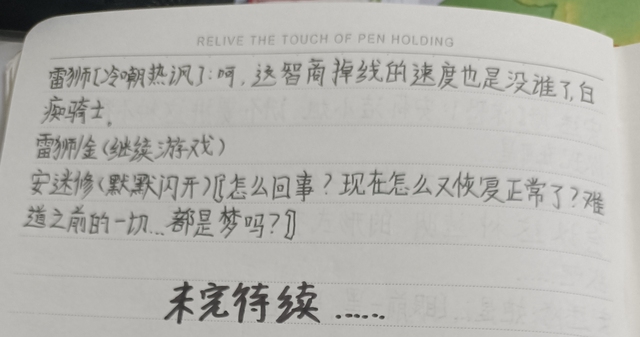 RELIVE THE TOUCH OF PEN HOLDING
雷狮[冷嘲热讽]:呵,这智商掉线的速度也是没谁了,白
痴骑士。
雷狮/金(继续游戏)
安迷修(默默闪开)[[怎么回事?现在怎么又恢复正常了?难
道之前的一切...都是梦吗?]]
未完待续......